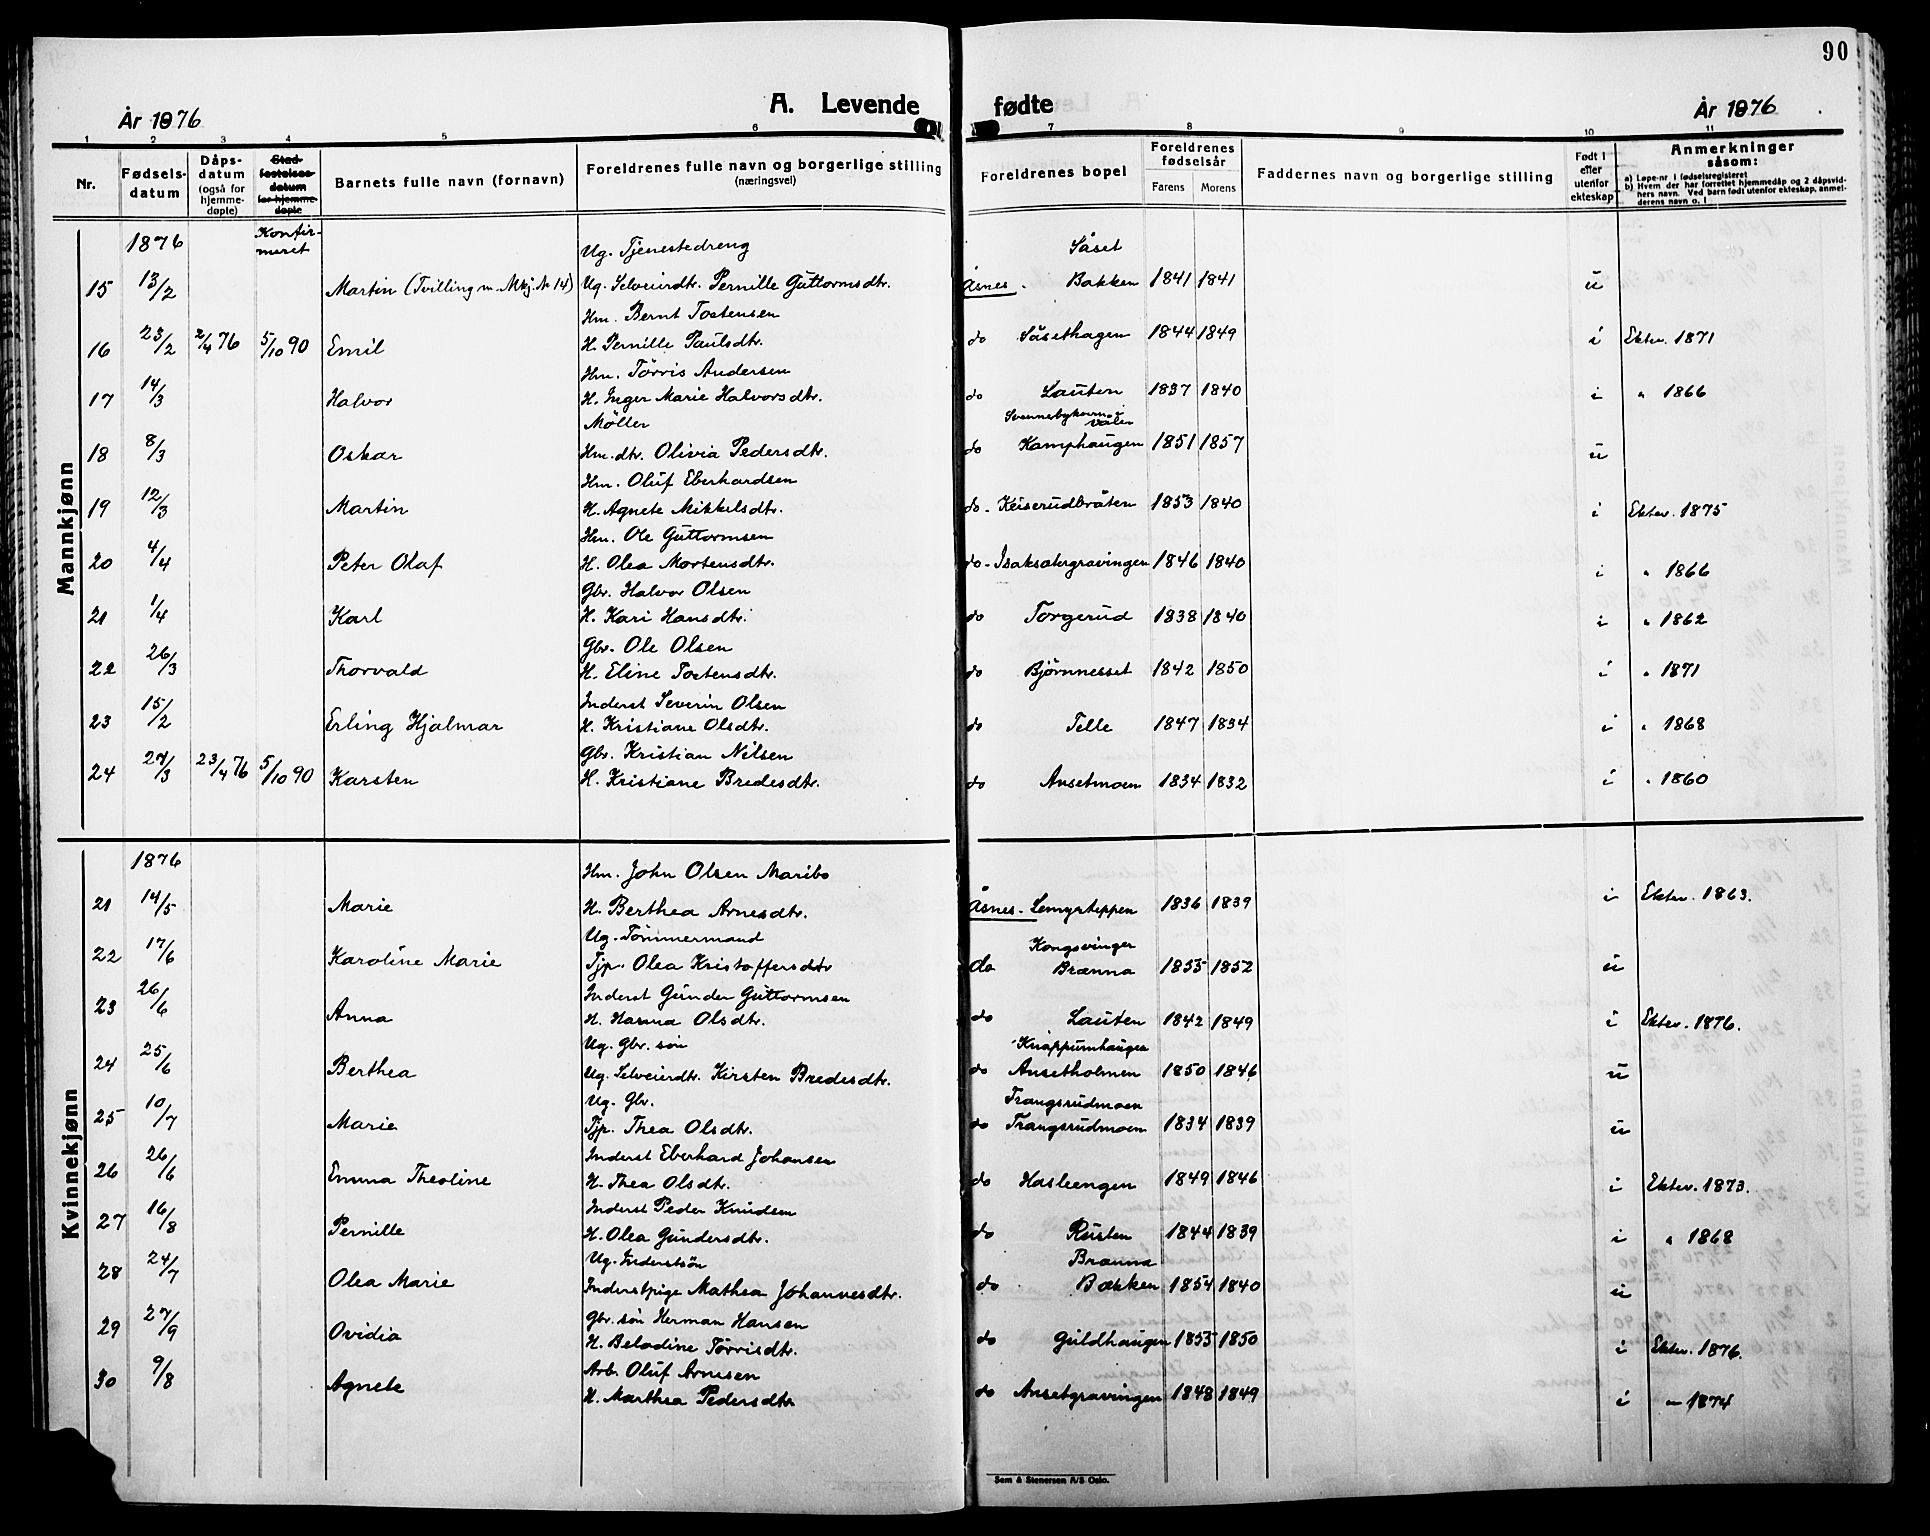 90
A. Levende fødte
År 1876
År 1876
1 2 3 4 5 6 7 8 9 10 11
Nr.
Fødsels-datum
Dåps-datum (også for hjemme-døpte)
Stad-festelses-datum for hjemme-døpte
Barnets fulle navn (fornavn)
Foreldrenes fulle navn og borgerlige stilling (næringsvei)
Foreldrenes bopel
Foreldrenes fødselsår
Farens Morens
Faddernes navn og borgerlige stilling
Født i eller utenfor ekteskap
Anmerkninger såsom:
a) Løpe-nr i fødselsregisteret
b) Hvem der har forrettet hjemmedåp og 2 dåpsvid-ners navn. Ved barn født utenfor ekteskap, anmel-derens navn o. l
Mannkjønn
1876 Konfir-meret
Ug. Tjenestedreng Såset
15 13/2 Martin (Tvilling m. Mkj. № 14) Ug. Selveierdtr. Pernille Guttormsdtr. Åsnes. Bakken 1841 1841 u
Hm. Bernt Tostensen
16 23/2 2/4 76 5/10 90 Emil H. Pernille Paulsdtr. do Såsethagen 1844 1849 i Ektev. 1871
Hm. Törris Andersen
17 14/3 Halvor H. Inger Marie Halvorsdtr. do Lauten 1837 1840 i " 1866
Möller Svennebykvern i Våler
18 8/3 Oskar Hm.dtr. Olivia Pedersdtr. do Kamphaugen 1851 1857 u
Hm. Oluf Eberhardsen
19 12/3 Martin H. Agnete Mikkelsdtr. do - Keiserudbråten 1853 1840 i Ektev. 1875
Hm. Ole Guttormsen
20 4/4 Peter Olaf H. Olea Mortensdtr. do - Isaksætergravingen 1846 1840 i " 1866
Gbr. Halvor Olsen
21 1/4 Karl H. Kari Hansdtr. do Torgerud 1838 1840 i " 1862
Gbr. Ole Olsen
22 26/3 Thorvald H. Eline Tostensdtr. do Bjørnnesset 1842 1850 i " 1871
Inderst Severin Olsen
23 15/2 Erling Hjalmar H. Kristiane Olsdtr. do Telle 1847 1834 i " 1868
Gbr. Kristian Nilsen
24 27/3 23/4 76 5/10 90 Karsten H. Kristiane Bredesdtr. do Ansetmoen 1834 1832 i " 1860
Kvinnekjønn
1876
Hm. John Olsen Maribo
21 14/5 Marie H. Berthea Arnesdtr. Åsnes. Lemyrteppen 1836 1839 i Ektev. 1863.
Ug. Tömmermand Kongsvinger
22 17/6 Karoline Marie Tjp. Olea Kristoffersdtr do Brænna 1855 1852 u
Inderst Gunder Guttormsen
23 26/6 Anna H. Hanna Olsdtr. do Lauten 1842 1849 i Ektev. 1876.
Ug. Gbr. søn Knappumhaugen
24 25/6 Berthea Ug. Selveierdtr. Kirsten Bredesdtr. do Ansetholmen 1850 1846 u
Ug. Gbr. Trangsrudmoen
25 10/7 Marie Tjp. Thea Olsdtr. do Trangsrudmoen 1834 1839 u
Inderst Eberhard Johansen
26 26/6 Emma Theoline H. Thea Olsdtr. do Hasleengen 1849 1846 i Ektev. 1873.
Inderst Peder Knudsen
27 16/8 Pernille H. Olea Gundersdtr. do Rusten 1844 1839 i " 1868
Ug. Inderstsön Brænna
28 24/7 Olea Marie Inderstpige Mathea Johannesdtr. do Bækken 1854 1840 u
Gbr. søn Herman Hansen
29 27/9 Ovidia H. Beladine Törrisdtr. do Guldhaugen 1855 1850 i Ektev. 1876.
Arb. Oluf Arnesen
30 9/8 Agnete H. Marthea Pedersdtr do Ansetgravingen 1848 1849 i " 1874
Sem & Stenersen A/S Oslo.